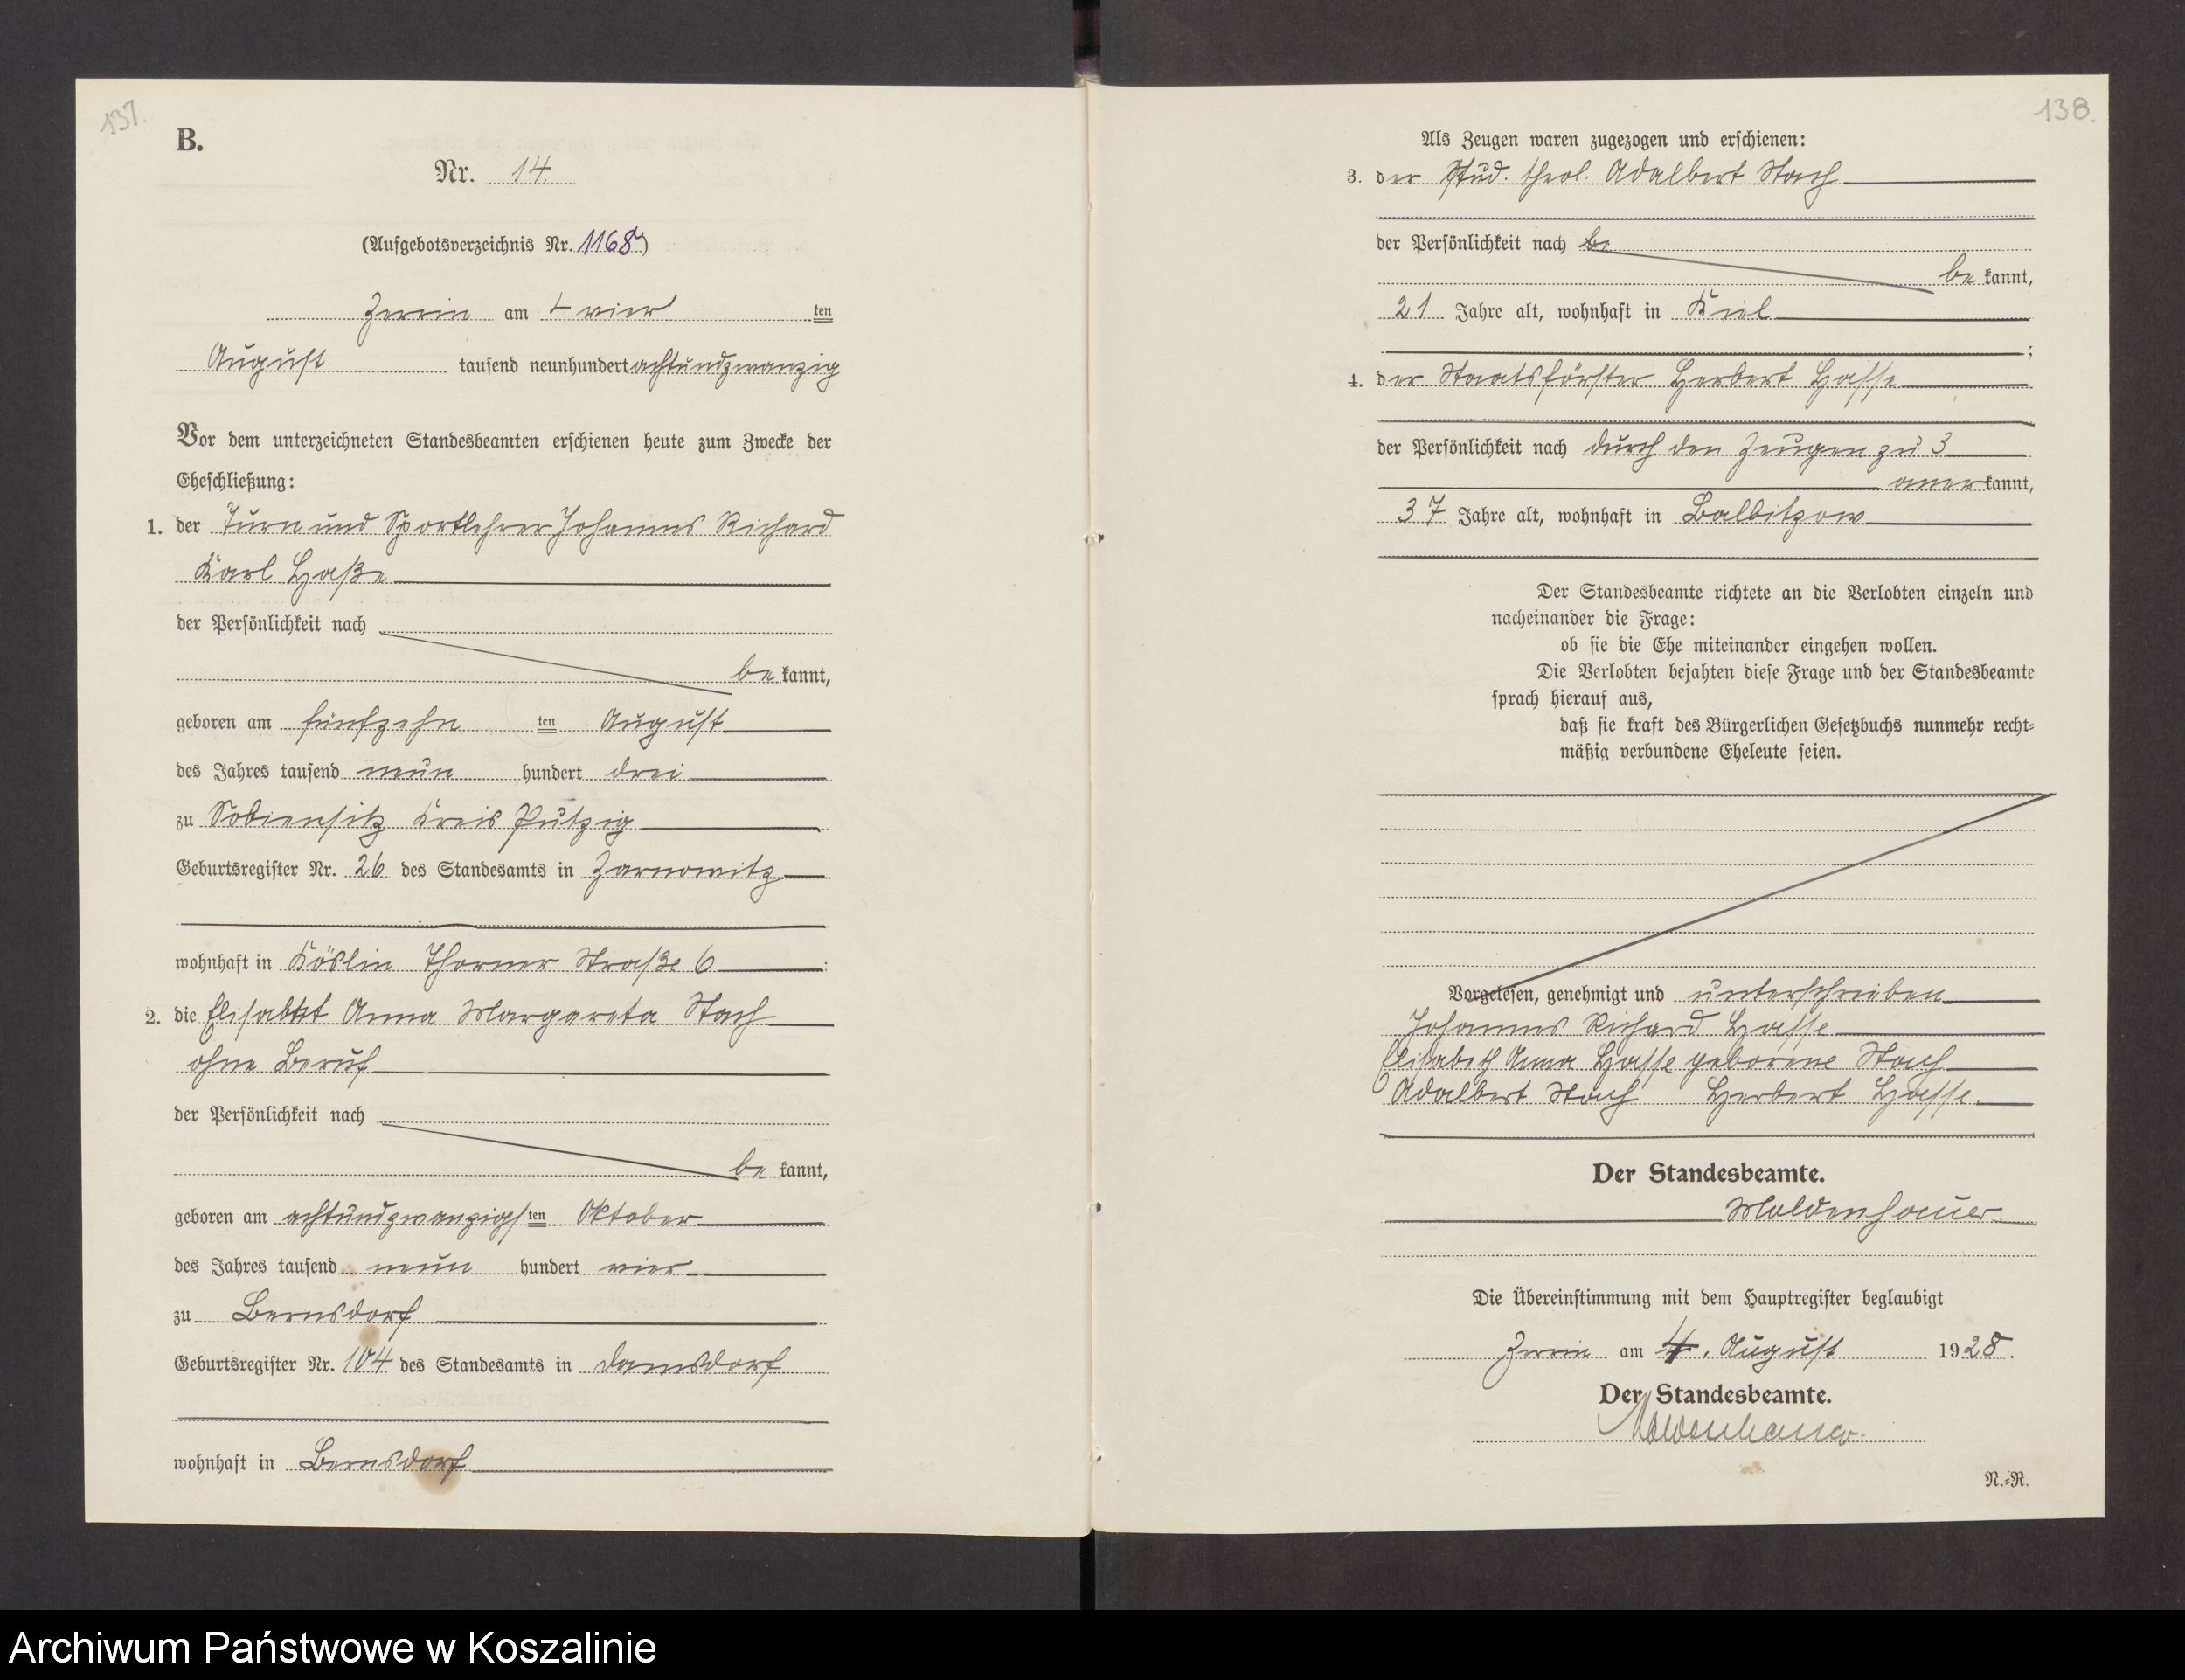 137.
B.
Nr. 14.
(Aufgebotsverzeichnis Nr. 1168)
Zerrin am 4 vier ten
August tausend neunhundert achtundzwanzig
Vor dem unterzeichneten Standesbeamten erschienen heute zum Zwecke der
Eheschließung:
1. der Turn und Sportlehrer Johannes Richard
Karl Haße
der Persönlichkeit nach
be kannt,
geboren am fünfzehn ten August
des Jahres tausend neun hundert drei
zu Sobiensitz Kreis Putzig
Geburtsregister Nr. 26 des Standesamts in Zarnowitz
wohnhaft in Köslin Thorner Straße 6
2. die Elisabet Anna Margareta Stach
ohne Beruf
der Persönlichkeit nach
be kannt,
geboren am achtundzwanzigs ten Oktober
des Jahres tausend neun hundert vier
zu Bernsdorf
Geburtsregister Nr. 104 des Standesamts in Damsdorf
wohnhaft in Bernsdorf
138.
Als Zeugen waren zugezogen und erschienen:
3. der Stud. theol. Adalbert Stach
der Persönlichkeit nach be
be kannt,
21 Jahre alt, wohnhaft in Kiel
;
4. der Staatsförster Herbert Hasse
der Persönlichkeit nach durch den Zeugen zu 3
aner kannt,
37 Jahre alt, wohnhaft in Balbitzow
Der Standesbeamte richtete an die Verlobten einzeln und
nacheinander die Frage:
ob sie die Ehe miteinander eingehen wollen.
Die Verlobten bejahten diese Frage und der Standesbeamte
sprach hierauf aus,
daß sie kraft des Bürgerlichen Gesetzbuchs nunmehr recht-
mäßig verbundene Eheleute seien.
Vorgelesen, genehmigt und unterschrieben
Johannes Richard Hasse
Elisabeth Anna Hasse geborene Stach
Adalbert Stach Herbert Hasse
Der Standesbeamte.
Moldenhauer
Die Übereinstimmung mit dem Hauptregister beglaubigt
Zerrin am 4. August 1928.
Der Standesbeamte.
Moldenhauer.
N.-R.
Archiwum Państwowe w Koszalinie